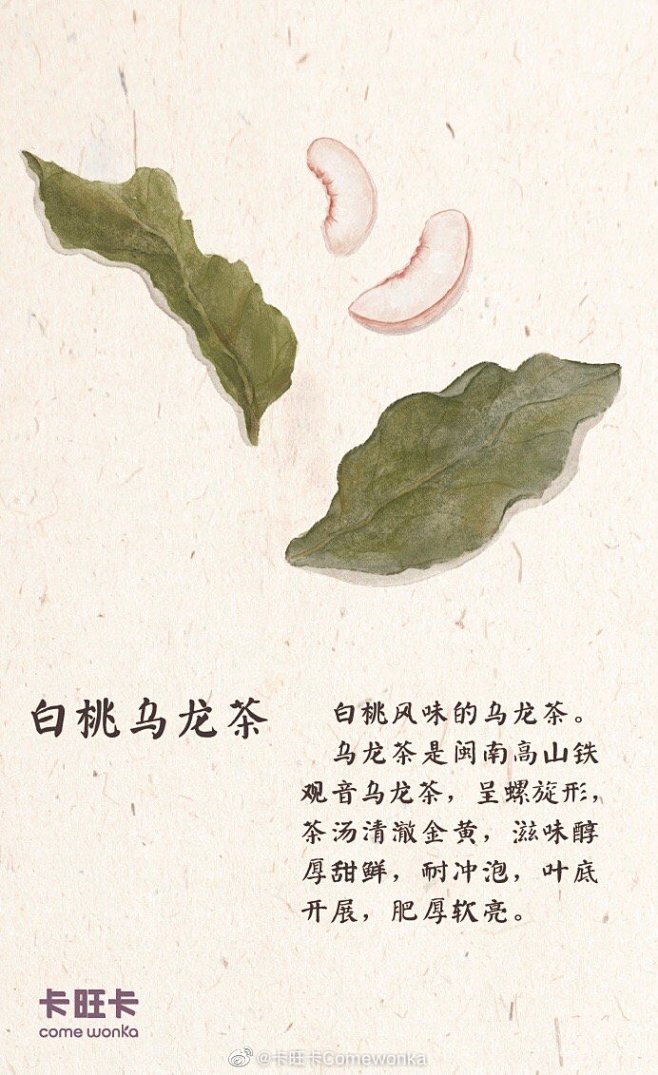 白桃乌龙茶
白桃风味的乌龙茶。
乌龙茶是闽南高山铁
观音乌龙茶，呈螺旋形，
茶汤清澈金黄，滋味醇
厚甜鲜，耐冲泡，叶底
开展，肥厚软亮。
卡旺卡
come wonka
@卡旺卡Comewonka